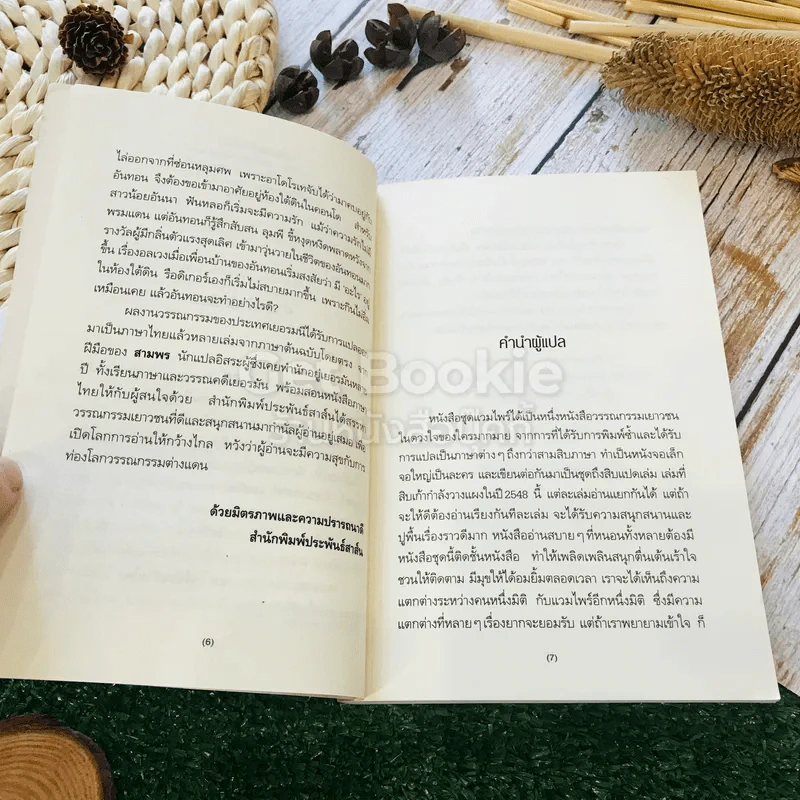 ไล่ออกจากที่ซ่อนหลุมศพ เพราะอาโดโรเทจับได้ว่ามาคบอยู่กับ
อันทอน จึงต้องขอเข้ามาอาศัยอยู่ห้องใต้ดินในคอนโด สำหรับ
สาวน้อยอันนา ฟันหลอก็เริ่มจะมีความรัก แม้ว่าความรักไม่มี
พรมแดน แต่อันทอนก็รู้สึกสับสน ลุมพี ขี้หงุดหงิดพลาดหวังจาก
รางวัลผู้มีกลิ่นตัวแรงสุดเลิศ เข้ามาวุ่นวายในชีวิตของอันทอนมาก
ขึ้น เรื่องอลเวงเมื่อเพื่อนบ้านของอันทอนเริ่มสงสัยว่า มี 'อะไร' อยู่
ในห้องใต้ดิน รือดิเกอร์เองก็เริ่มไม่สบายมากขึ้น เพราะกินไม่อิ่ม
เหมือนเคย แล้วอันทอนจะทำอย่างไรดี?
ผลงานวรรณกรรมของประเทศเยอรมนีได้รับการแปลออก
มาเป็นภาษาไทยแล้วหลายเล่มจากภาษาต้นฉบับโดยตรง จาก
ฝีมือของ สามพร นักแปลอิสระผู้ซึ่งเคยพำนักอยู่เยอรมันหลาย
ปี ทั้งเรียนภาษาและวรรณคดีเยอรมัน พร้อมสอนหนังสือภาษา
ไทยให้กับผู้สนใจด้วย สำนักพิมพ์ประพันธ์สาส์นได้สรรหา
วรรณกรรมเยาวชนที่ดีและสนุกสนานมากำนัลผู้อ่านอยู่เสมอ เพื่อ
เปิดโลกการอ่านให้กว้างไกล หวังว่าผู้อ่านจะมีความสุขกับการ
ท่องโลกวรรณกรรมต่างแดน
ด้วยมิตรภาพและความปรารถนาดี
สำนักพิมพ์ประพันธ์สาส์น
(6)
คำนำผู้แปล
หนังสือชุดแวมไพร์ได้เป็นหนึ่งหนังสือวรรณกรรมเยาวชน
ในดวงใจของใครมากมาย จากการที่ได้รับการพิมพ์ซ้ำและได้รับ
การแปลเป็นภาษาต่างๆ ถึงกว่าสามสิบภาษา ทำเป็นหนังจอเล็ก
จอใหญ่เป็นละคร และเขียนต่อกันมาเป็นชุดถึงสิบแปดเล่ม เล่มที่
สิบเก้ากำลังวางแผงในปี 2548 นี้ แต่ละเล่มอ่านแยกกันได้ แต่ถ้า
จะให้ดีต้องอ่านเรียงกันทีละเล่ม จะได้รับความสนุกสนานและ
ปูพื้นเรื่องราวดีมาก หนังสืออ่านสบายๆ ที่หนอนทั้งหลายต้องมี
หนังสือชุดนี้ติดชั้นหนังสือ ทำให้เพลิดเพลินสนุกตื่นเต้นเร้าใจ
ชวนให้ติดตาม มีมุขให้ได้อมยิ้มตลอดเวลา เราจะได้เห็นถึงความ
แตกต่างระหว่างคนหนึ่งมิติ กับแวมไพร์อีกหนึ่งมิติ ซึ่งมีความ
แตกต่างที่หลายๆ เรื่องยากจะยอมรับ แต่ถ้าเราพยายามเข้าใจ ก็
(7)
Get Bookie